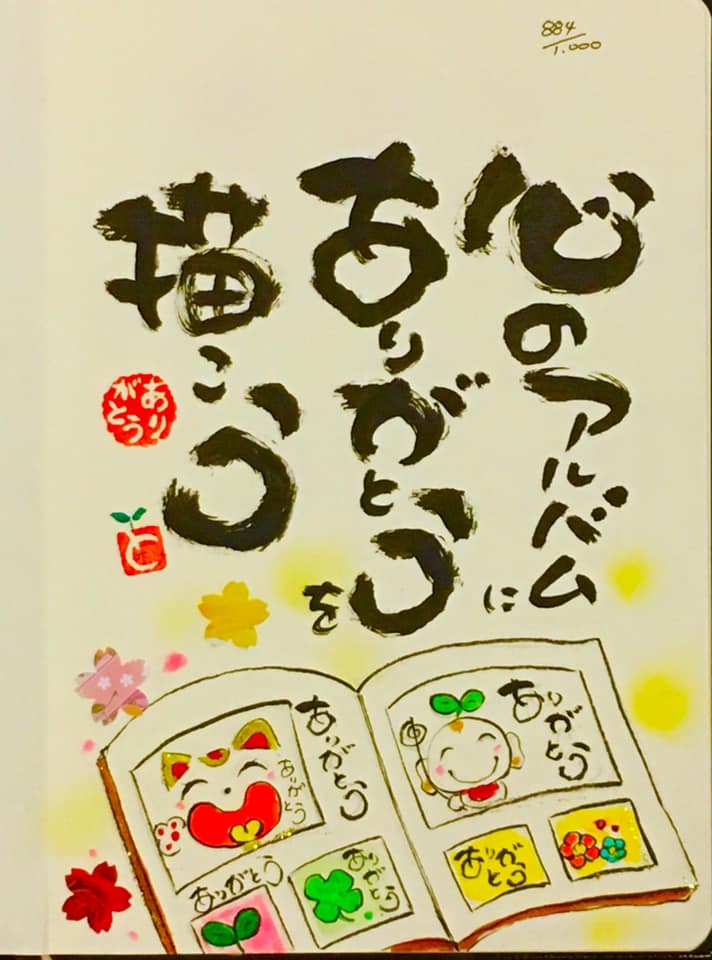 884
1.000
心のアルバムに
ありがとうを
描こう
ありがとう
と
ありがとう
ありがとう
ありがとう
ありがとう
ありがとう
ありがとう